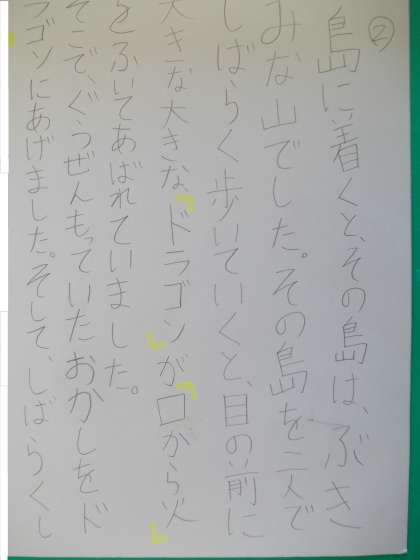 ②
島に着くと、その島は、ぶき
みな山でした。その島を二人で
しばらく歩いていくと、目の前に
大きな大きな「ドラゴン」が「口から火」
をふいてあばれていました。
そこで、ぐうぜんもっていたおかしをド
ラゴンにあげました。そして、しばらくし